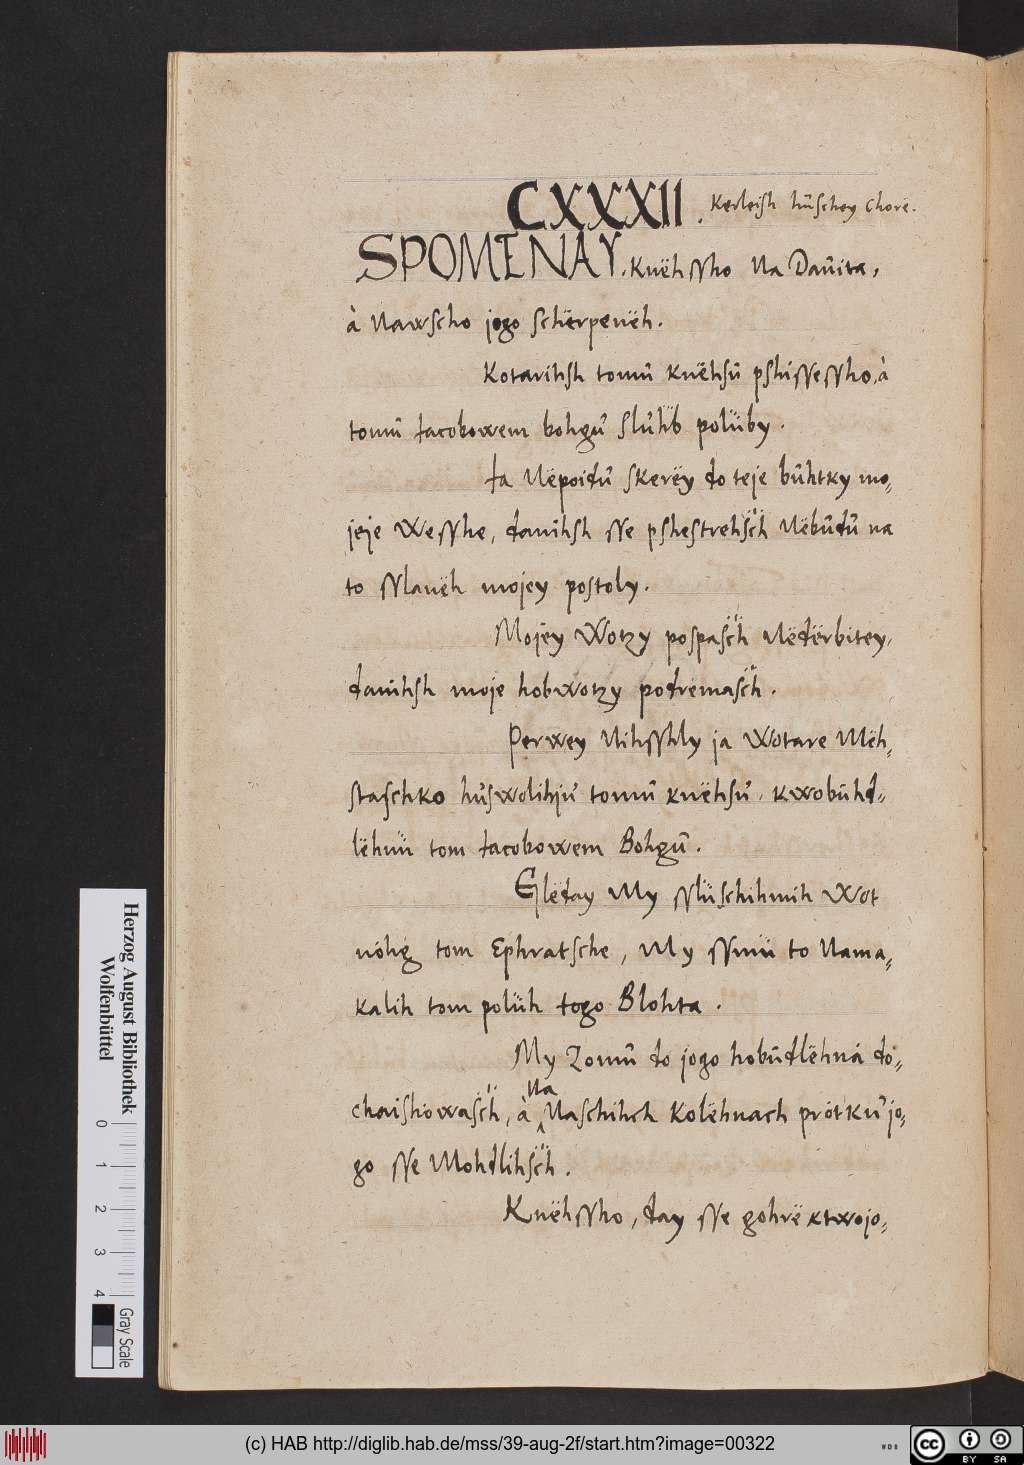 CXXXII. Kerleish hŭschey Chore.
SPOMENAY. Knëhssho Na Daŭita,
à Nawscho jogo schërpenëh.
Kotarihsh tomŭ knëhsŭ pshissessho, à
tomŭ Jacobowem bohgŭ slŭhb polŭby.
Ja Nëpoidŭ skerëy do teje bŭhtky mo=
jeje Wesshe, danihsh sse pshestrehsc̈h Nëbŭdŭ na
to sslanëh mojey postoly.
Mojëy Wotzy pospasc̈h Nëdërbitey,
danihsh moje hobwotzy podremasc̈h.
Perwey Nihsshly ja Wotare Mëh=
staschko hŭswolihjŭ tomŭ knëhsŭ, kwobŭhd=
lëhnü tom Jacobowem Bohgŭ.
Glëday My sslüschihmih Wot
nóhg tom Ephratsche, My ssmü to Nama=
kalih tom polüh togo Blohta.
My Zomŭ do jogo hobŭdlëhná do=
chaishowasc̈h, à Na Naschihch Kolëhnach prótkŭ jo=
go sse Mohdlihsc̈h.
Knëhssho, day sse gohrë ktwojo=
Herzog August Bibliothek
Wolfenbüttel
0 1 2 3 4
Gray Scale
(c) HAB http://diglib.hab.de/mss/39-aug-2f/start.htm?image=00322
WDB
CC BY SA